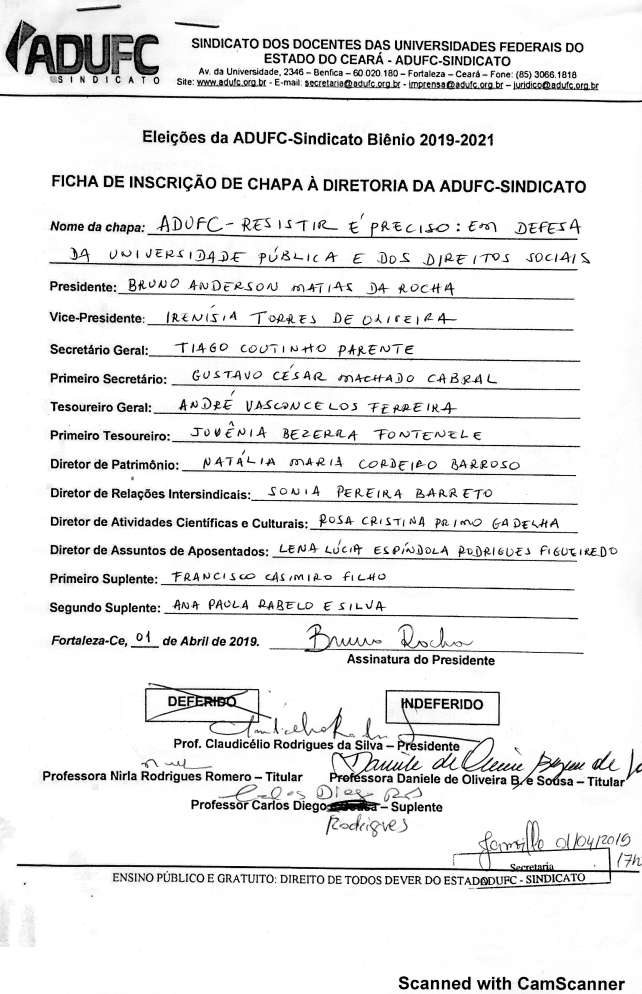 ADUFC
SINDICATO
SINDICATO DOS DOCENTES DAS UNIVERSIDADES FEDERAIS DO
ESTADO DO CEARÁ - ADUFC-SINDICATO
Av. da Universidade, 2346 – Benfica – 60 020.180 – Fortaleza – Ceará – Fone: (85) 3066.1818
Site: www.adufc.org.br - E-mail: secretaria@adufc.org.br - imprensa@adufc.org.br – juridico@adufc.org.br
Eleições da ADUFC-Sindicato Biênio 2019-2021
FICHA DE INSCRIÇÃO DE CHAPA À DIRETORIA DA ADUFC-SINDICATO
Nome da chapa: ADUFC - RESISTIR É PRECISO: EM DEFESA
DA UNIVERSIDADE PÚBLICA E DOS DIREITOS SOCIAIS
Presidente: BRUNO ANDERSON MATIAS DA ROCHA
Vice-Presidente: IRENÍSIA TORRES DE OLIVEIRA
Secretário Geral: TIAGO COUTINHO PARENTE
Primeiro Secretário: GUSTAVO CÉSAR MACHADO CABRAL
Tesoureiro Geral: ANDRÉ VASCONCELOS FERREIRA
Primeiro Tesoureiro: JUVÊNIA BEZERRA FONTENELE
Diretor de Patrimônio: NATÁLIA MARIA CORDEIRO BARROSO
Diretor de Relações Intersindicais: SONIA PEREIRA BARRETO
Diretor de Atividades Científicas e Culturais: ROSA CRISTINA PRIMO GADELHA
Diretor de Assuntos de Aposentados: LENA LÚCIA ESPÍNDOLA RODRIGUES FIGUEIREDO
Primeiro Suplente: FRANCISCO CASIMIRO FILHO
Segundo Suplente: ANA PAULA RABELO E SILVA
Fortaleza-Ce, 01 de Abril de 2019. Bruno Rocha
Assinatura do Presidente
DEFERIDO INDEFERIDO
Prof. Claudicélio Rodrigues da Silva – Presidente
Daniele de Oliveira Bezerra de
Professora Nirla Rodrigues Romero – Titular Professora Daniele de Oliveira B. e Sousa – Titular
Carlos Diego
Professor Carlos Diego – Suplente
Rodrigues
01/04/2019
17h
Secretaria
ENSINO PÚBLICO E GRATUITO: DIREITO DE TODOS DEVER DO ESTADO ADUFC - SINDICATO
Scanned with CamScanner